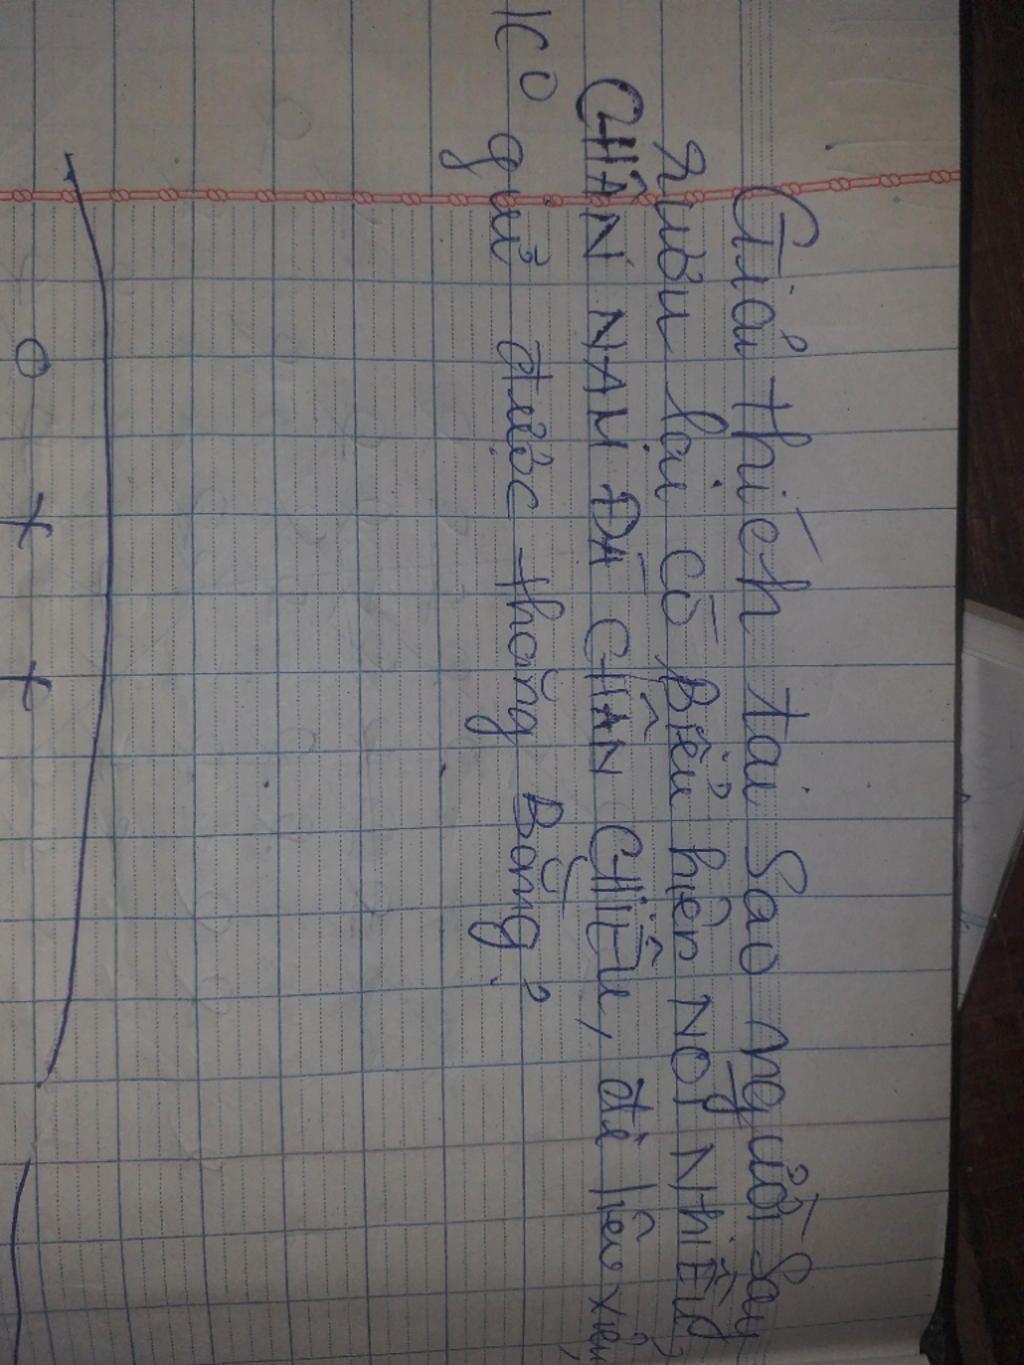 Giải thích tại sao người say
rượu lại có biểu hiện NÓI NHIỀU,
CHÂN NAM ĐÁ CHÂN CHIÊU, đi liêu xiêu,
K0 giữ được thăng Bằng?